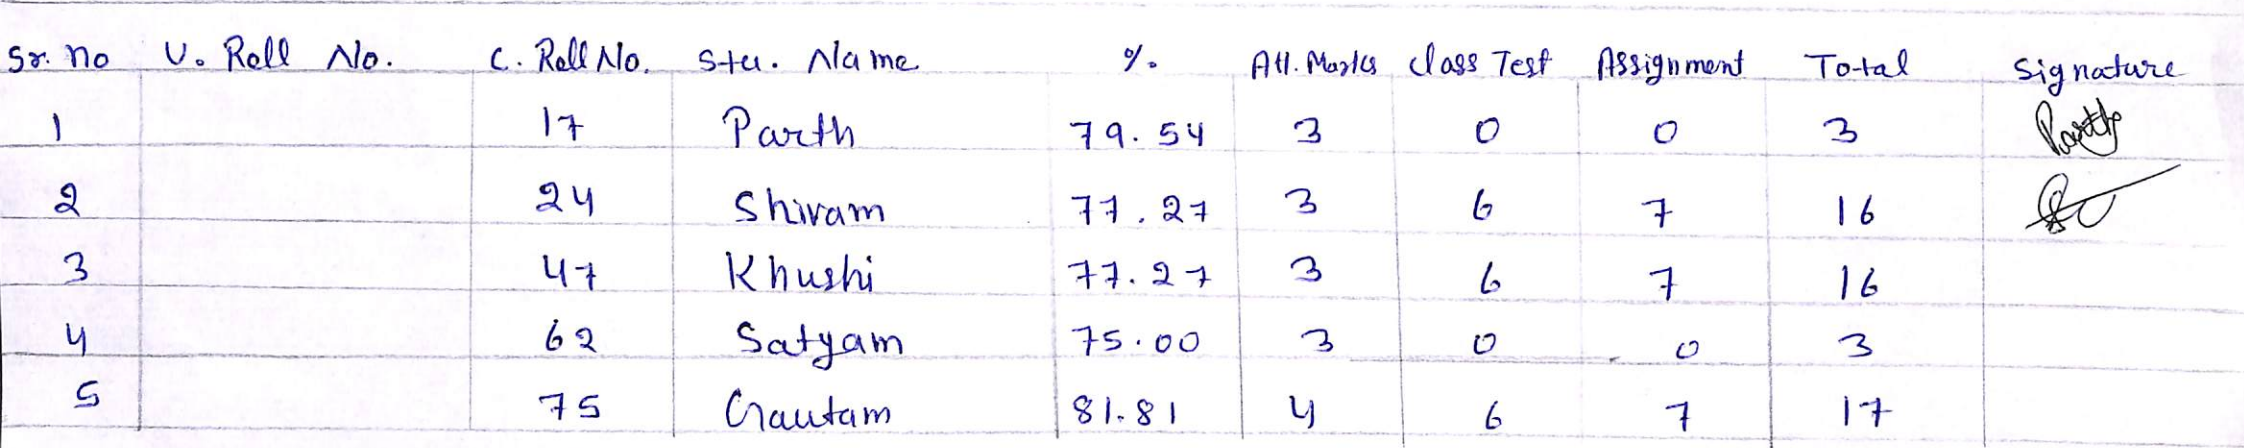 Sr. No U. Roll No. C. Roll No. Stu. Name %. Att. Marks Class Test Assignment Total Signature
1 17 Parth 79.54 3 0 0 3 Parth
2 24 Shivam 77.27 3 6 7 16
3 47 Khushi 77.27 3 6 7 16
4 62 Satyam 75.00 3 0 0 3
5 75 Gautam 81.81 4 6 7 17